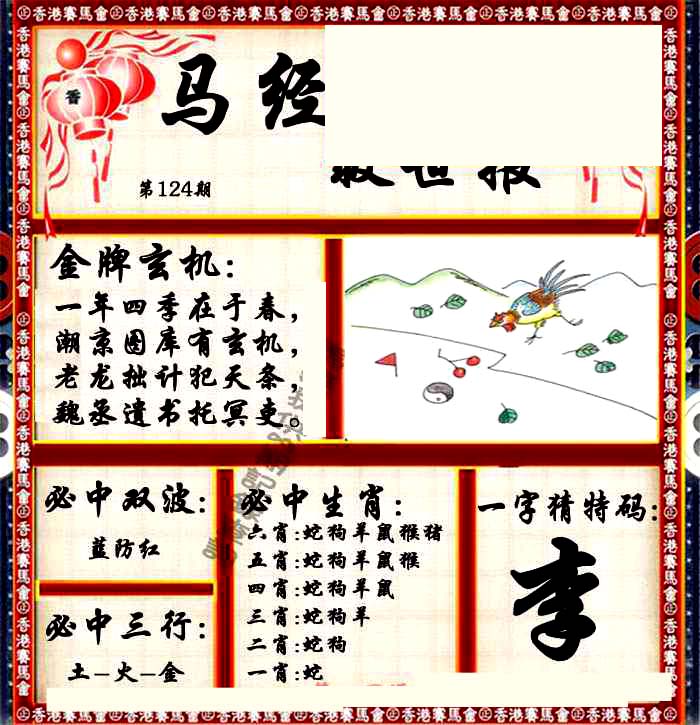 香港賽馬會
马经
救世报
第124期
香
金牌玄机:
一年四季在于春,
潮京图库有玄机,
老龙拙计犯天条,
魏丞遗书托冥吏。
必中双波:
蓝防红
必中三行:
土–火–金
必中生肖:
六肖:蛇狗羊鼠猴猪
五肖:蛇狗羊鼠猴
四肖:蛇狗羊鼠
三肖:蛇狗羊
二肖:蛇狗
一肖:蛇
一字猜特码:
李